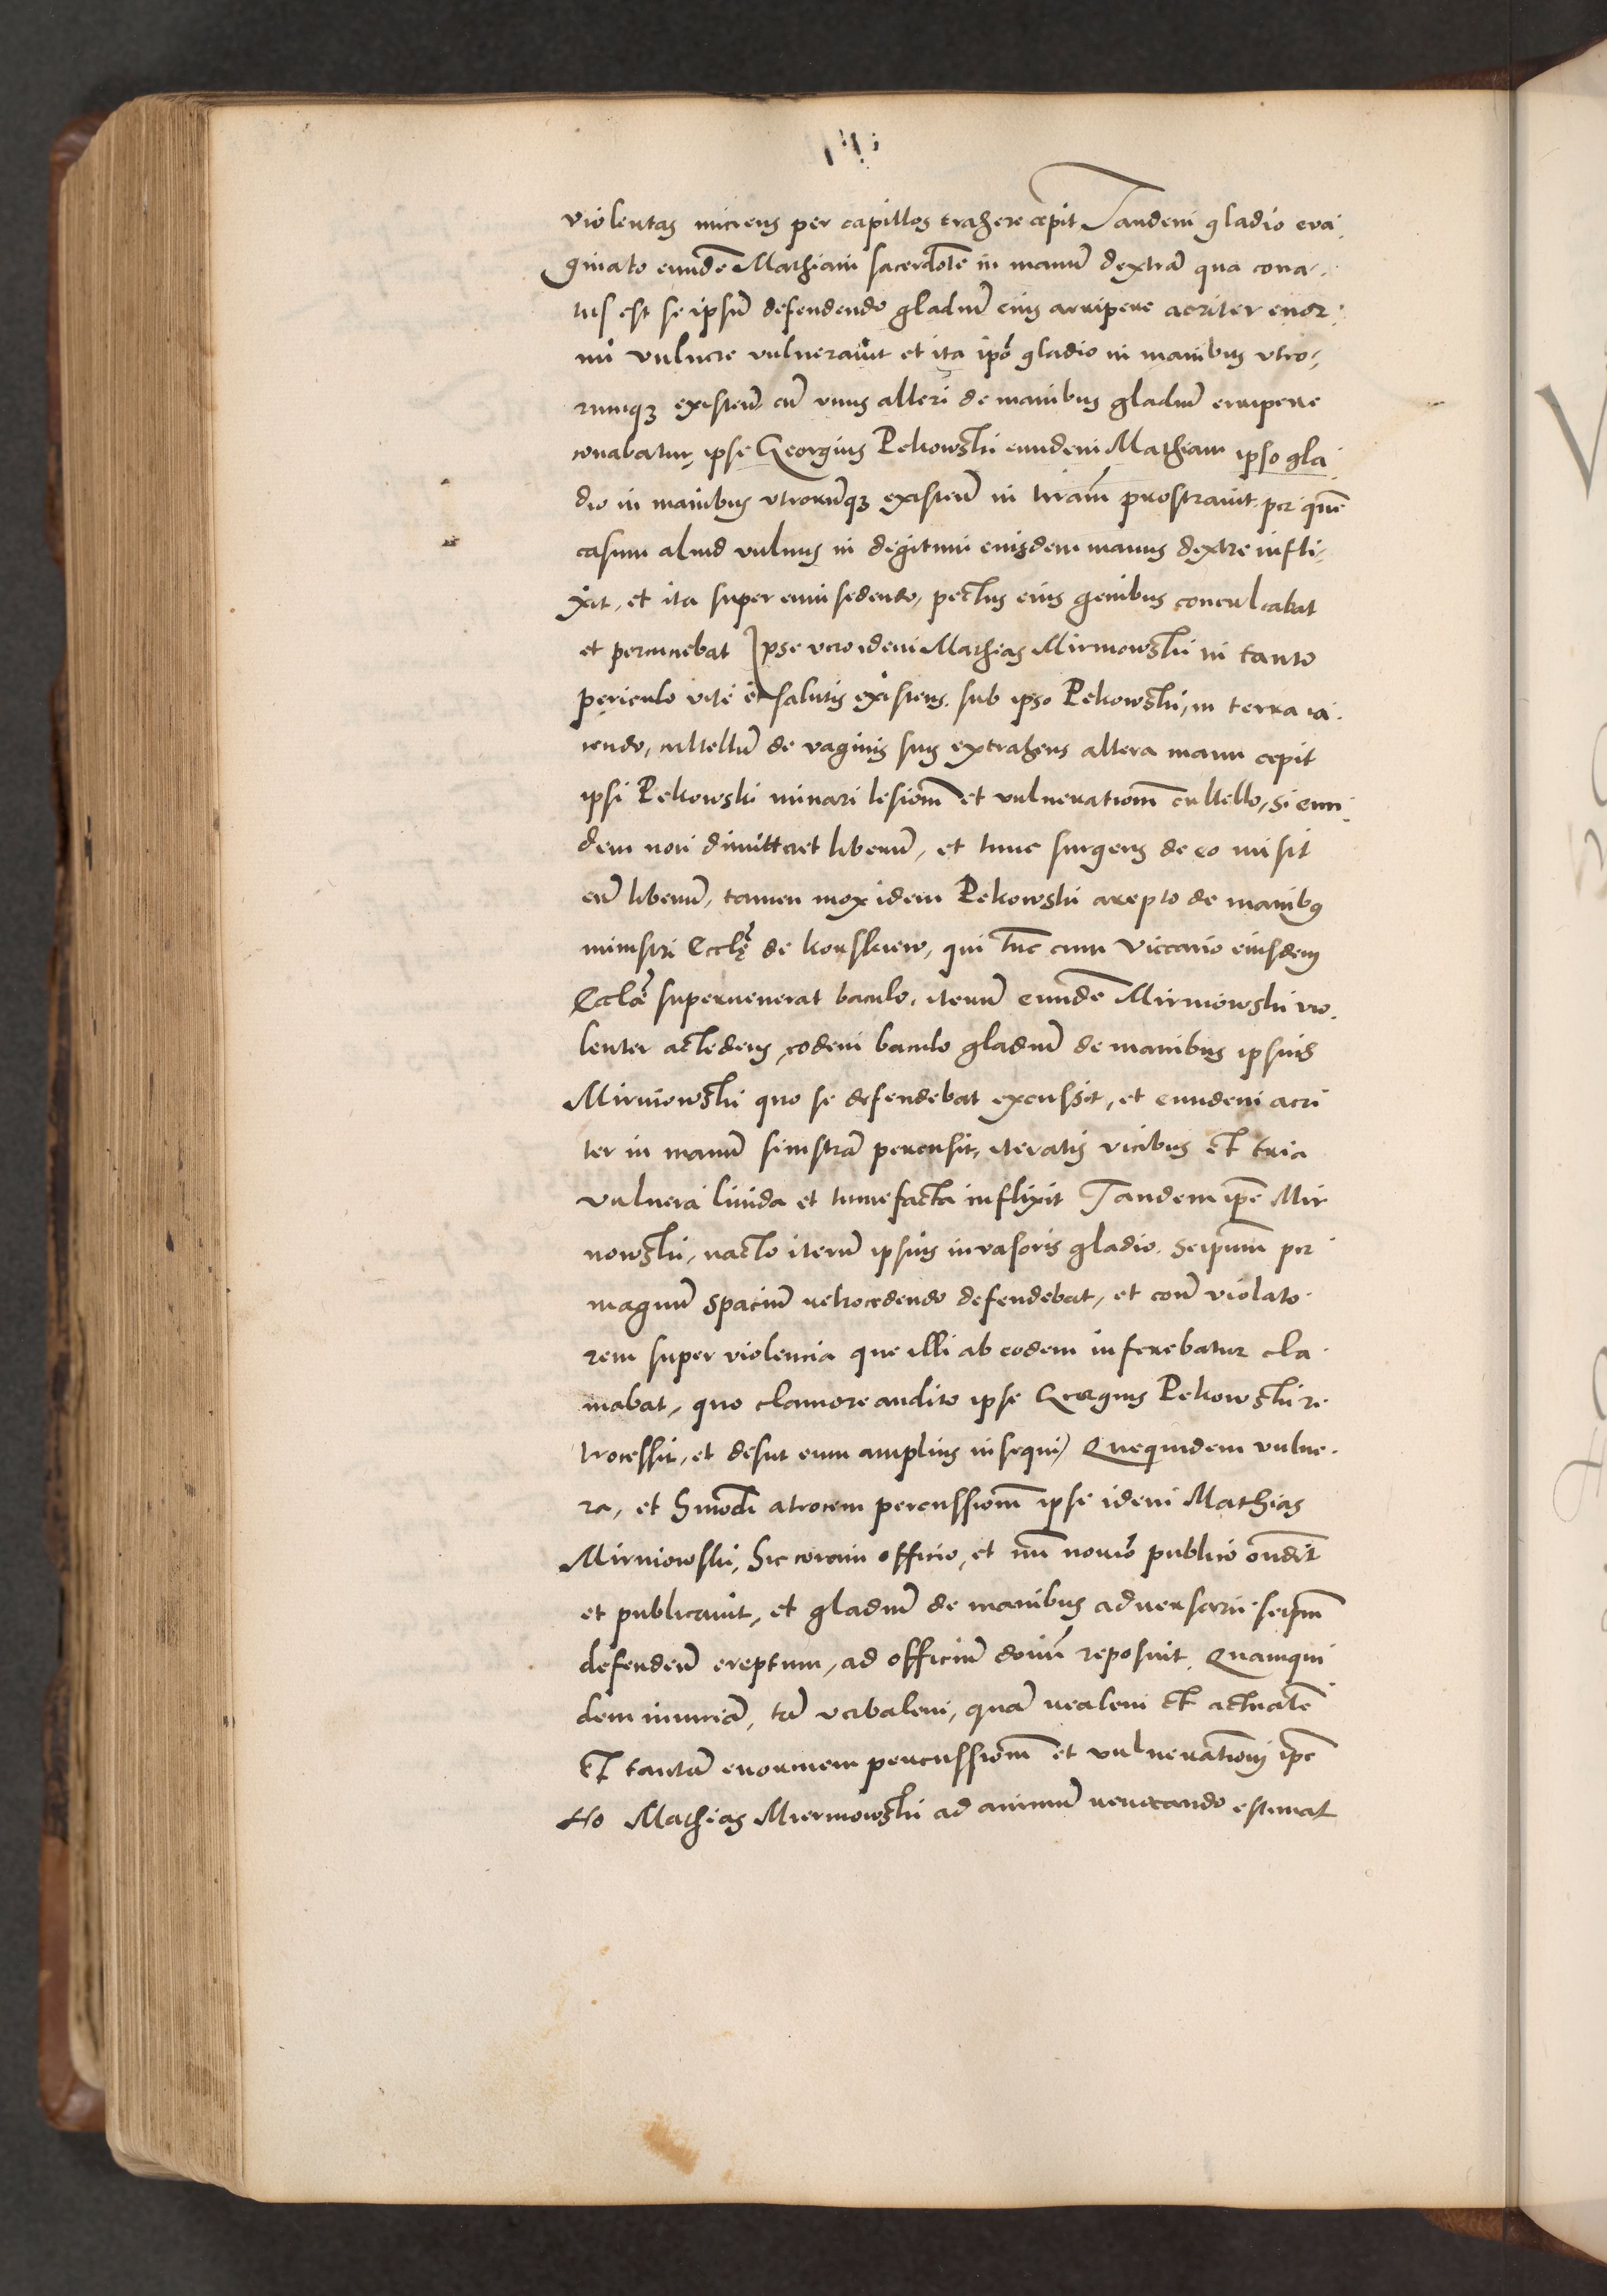 violentas iniciens per capillos trahere cepit Tandem gladio eva
ginato eundē Mathiam sacerdotē in manū dextrā qua cona
tus est se ipsū defendendo gladiū eius arripere acriter enor
mi vulnere vulneravit et ita ipo gladio in manibus utro
rumq3 existen̄ cū unus alteri de manibus gladiū erripere
conabatur, ipse Georgius Pekowski eundem Mathiam ipso gla
dio in manibus utrorumq3 existen̄ in terram prostravit per quē
casum aliud vulnus in degitum eiusdem manus dextre infli
xit, et ita super eum sedendo, pectus eius genibus conculcabat
et percuciebat Ipse vero idem Mathias Mirniowski in tanto
periculo vite et salutis existens sub ipso Pekowski, in terra ia
cendo, cultellū de vaginis suis extrahens altera manu cepit
ipsi Pekowski minari lesionē et vulnerationē cultello, si eun
dem non dimitteret liberū, et tunc surgens de eo misit
eū liberū, tamen mox idem Pekowski arepto de manibus
ministri Eccle de Konskiew, qui tūc cum Viccario eiusdem
Eccle supervenerat baculo, iterū eundē Mirniowski vio
lenter accedens eodem baculo gladiū de manibus ipsius
Mirniowski quo se defendebat excussit, et eundem acri
ter in manū sinistrā percusit, iteratis vicibus et tria
vulnera livida et tumefacta inflixit Tandem ipe Mir
nowski, nacto iterū ipsius invasoris gladio seipsum per
magnū spaciū retrocedendo defendebat, et con̄ violato
rem super violencia que illi ab eodem inferebatur cla
mabat, quo clamore audito ipse Georgius Pekowski re
trocessit, et desiit eum amplius insequi, Quequidem vulne
ra, et hmōdi atrocem percussionē ipse idem Mathias
Mirniowski, hic coram officio, et me norio publico ondit
et publicavit, et gladiū de manibus adversarii seipm
defenden̄ ereptum, ad officiū reposuit Quamqui
dem iniuriā, tā verbalem, quā realem et actualē
Et tantā enormem percussionē et vulnerationē ipe
Mathias Miernowski ad animū revocando estimat